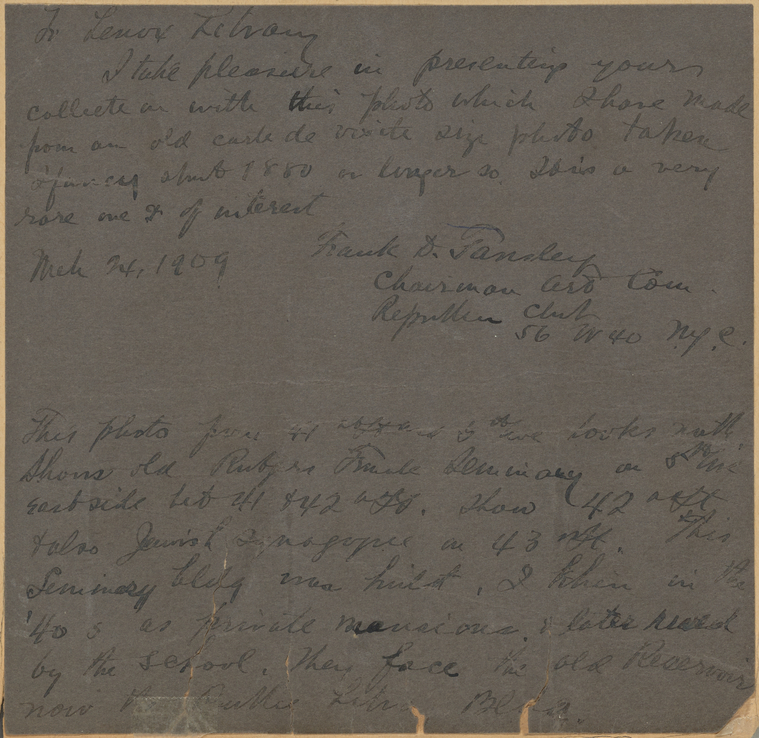 To Lenox Library
I take pleasure in presenting yours
collection with this photo which I have made
from an old carte de visite size photo taken
about 1880 or longer so. This is a very
rare one & of interest
Mch 24, 1909 Frank D. Tansley
Chairman Art Com.
Republican Club
56 W 40 N.Y.C.
This photo from 41 and 5th Ave looks north
Shows old Rutgers Female Seminary on 5th Ave
east side bet 41 & 42 Show 42
& also Jewish Synagogue on 43 This
Seminary bldg was built, I think in the
'40s as private mansions, & later used
by the School. They face the old Reservoir
now the Public Library Bldg.